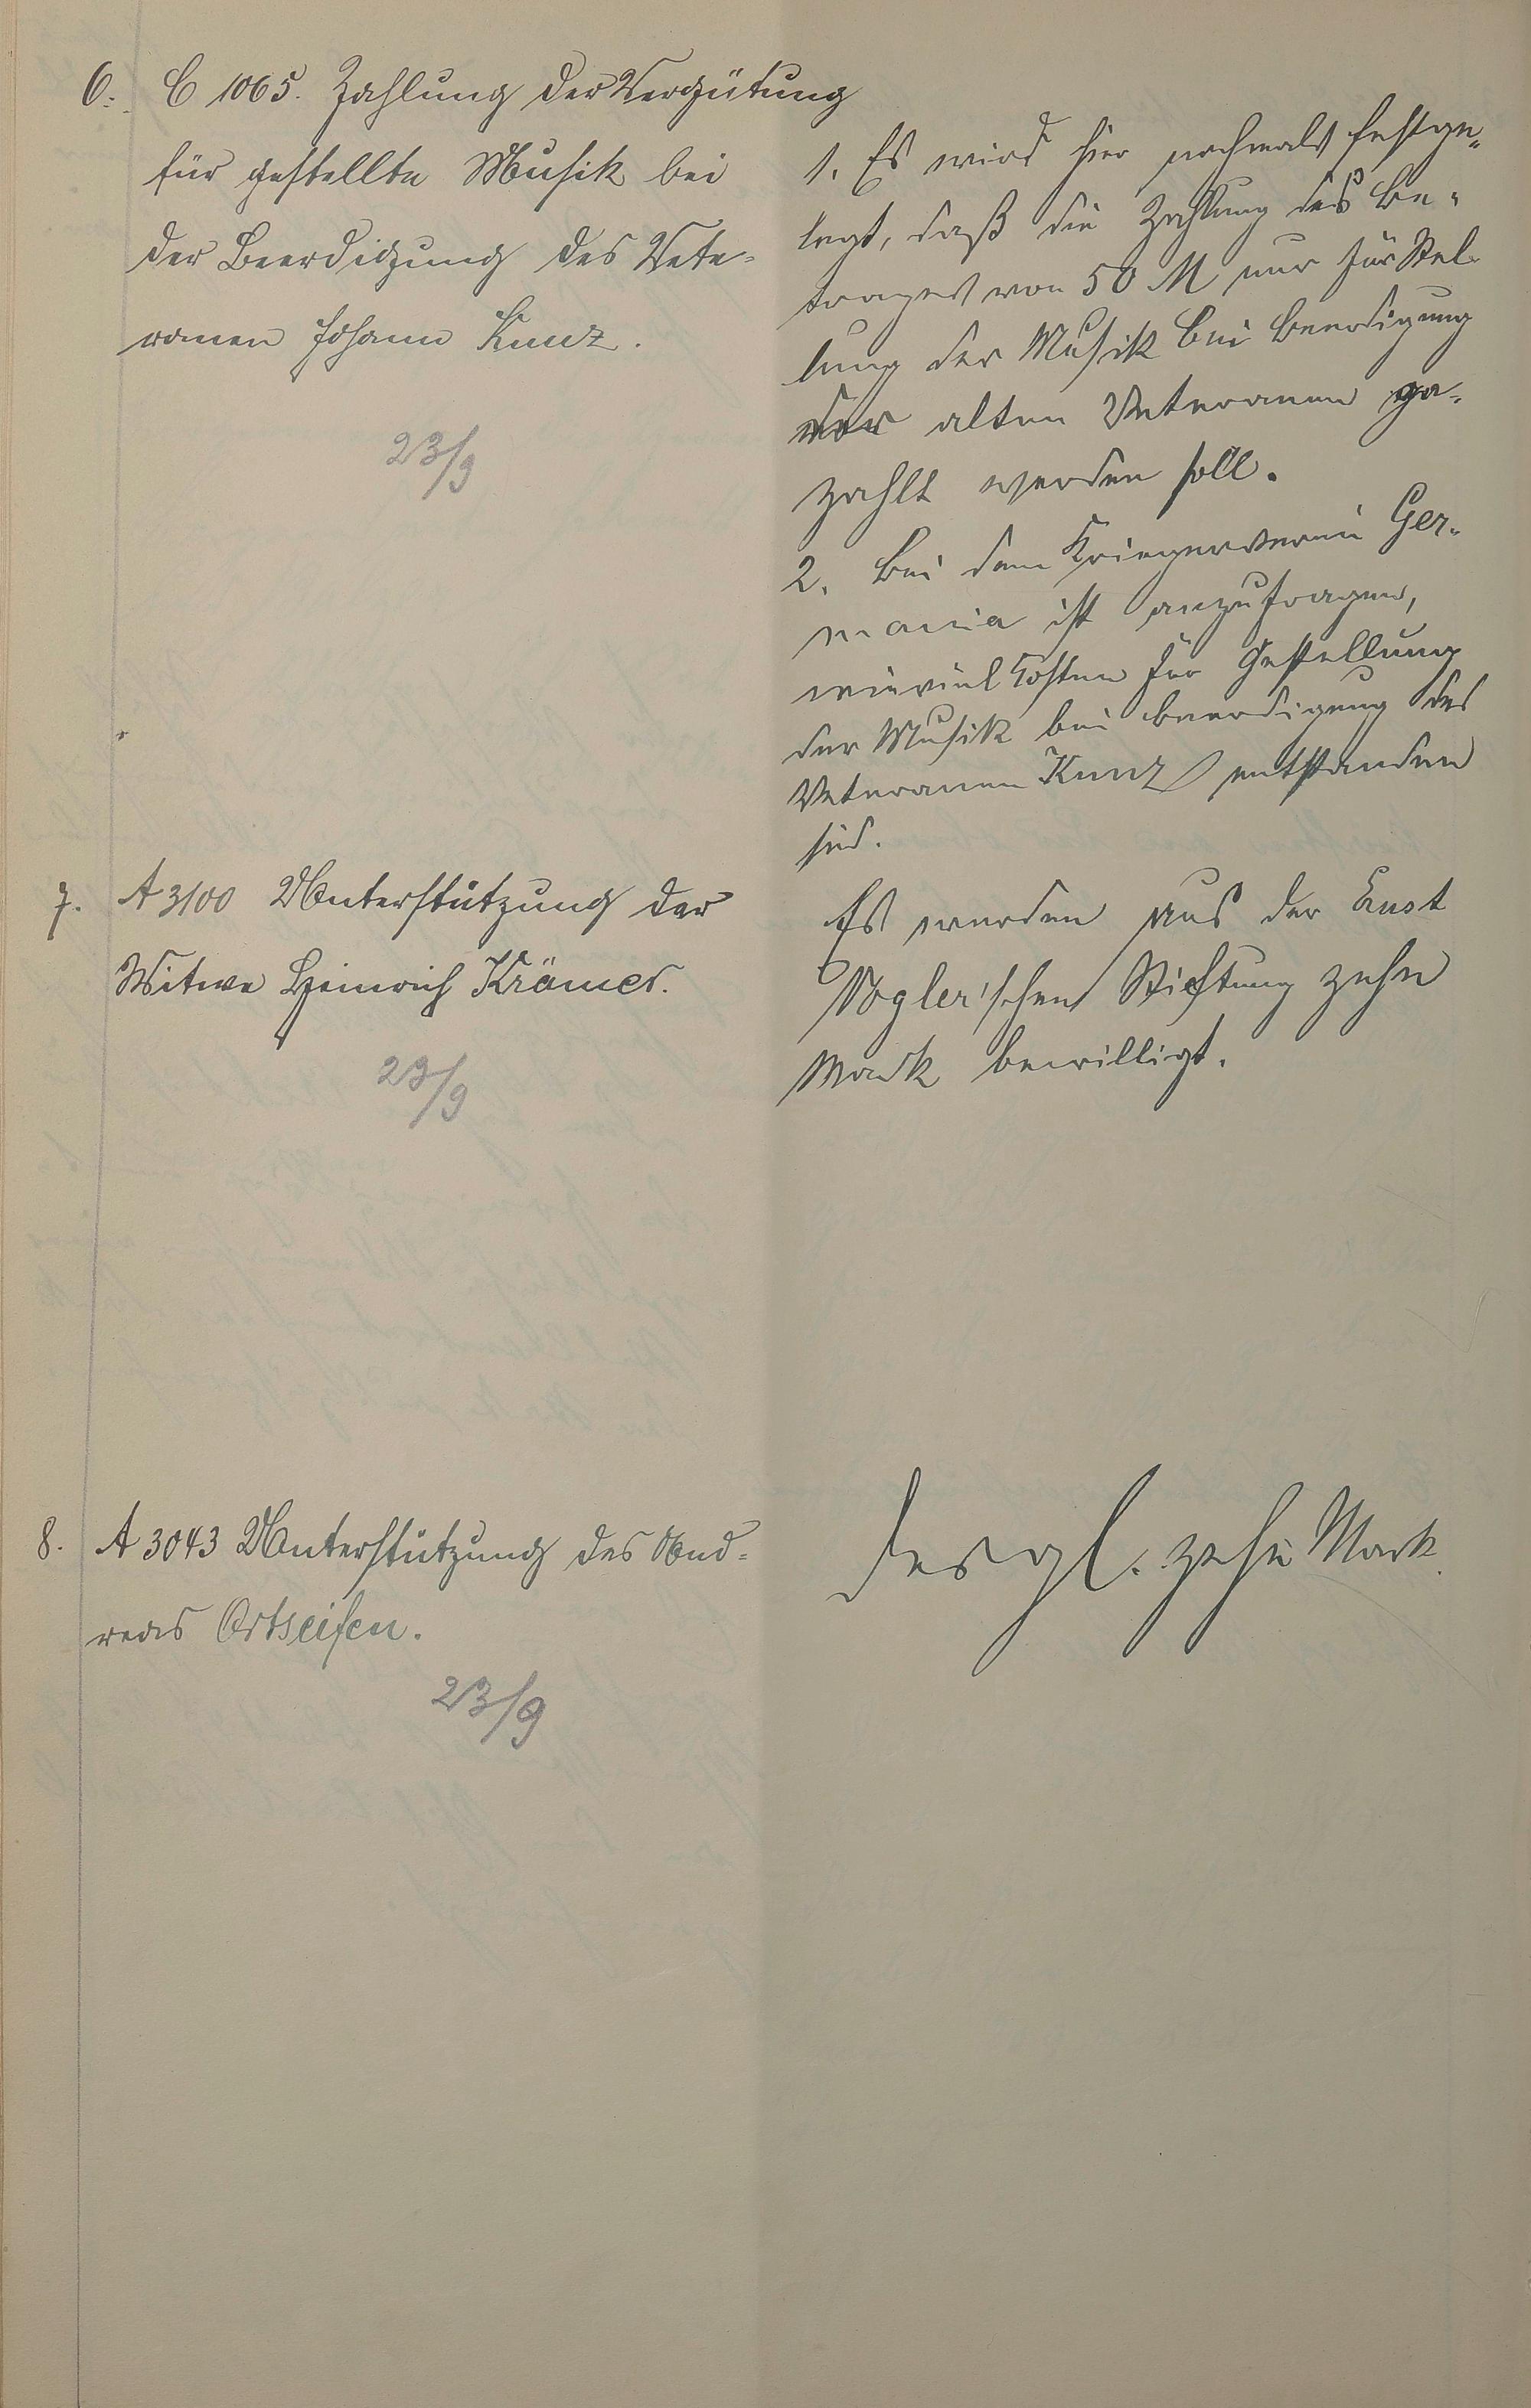 6. C 1065. Zahlung der Vergütung
für gestellte Musik bei
der Beerdigung des Vete-
ranen Johann Kunz.
23/9
1. Es wird hier nochmals festge-
legt, daß die Zahlung des Be-
trages von 50 M nur für Stel-
lung der Musik bei Beerdigung
der alten Veteranen ge-
zahlt werden soll.
2. Bei dem Kriegerverein Ger-
mania ist anzufragen,
wieviel Kosten für Gestellung
der Musik bei Beerdigung des
Veteranen Kunz entstanden
sind.
7. A 3100 Unterstützung der
Witwe Heinrich Krämer.
23/9
Es werden aus der Cust
Vogler'schen Stiftung zehn
Mark bewilligt.
8. A 3043 Unterstützung des And-
reas Ortseifen.
23/9
desgl. zehn Mark.